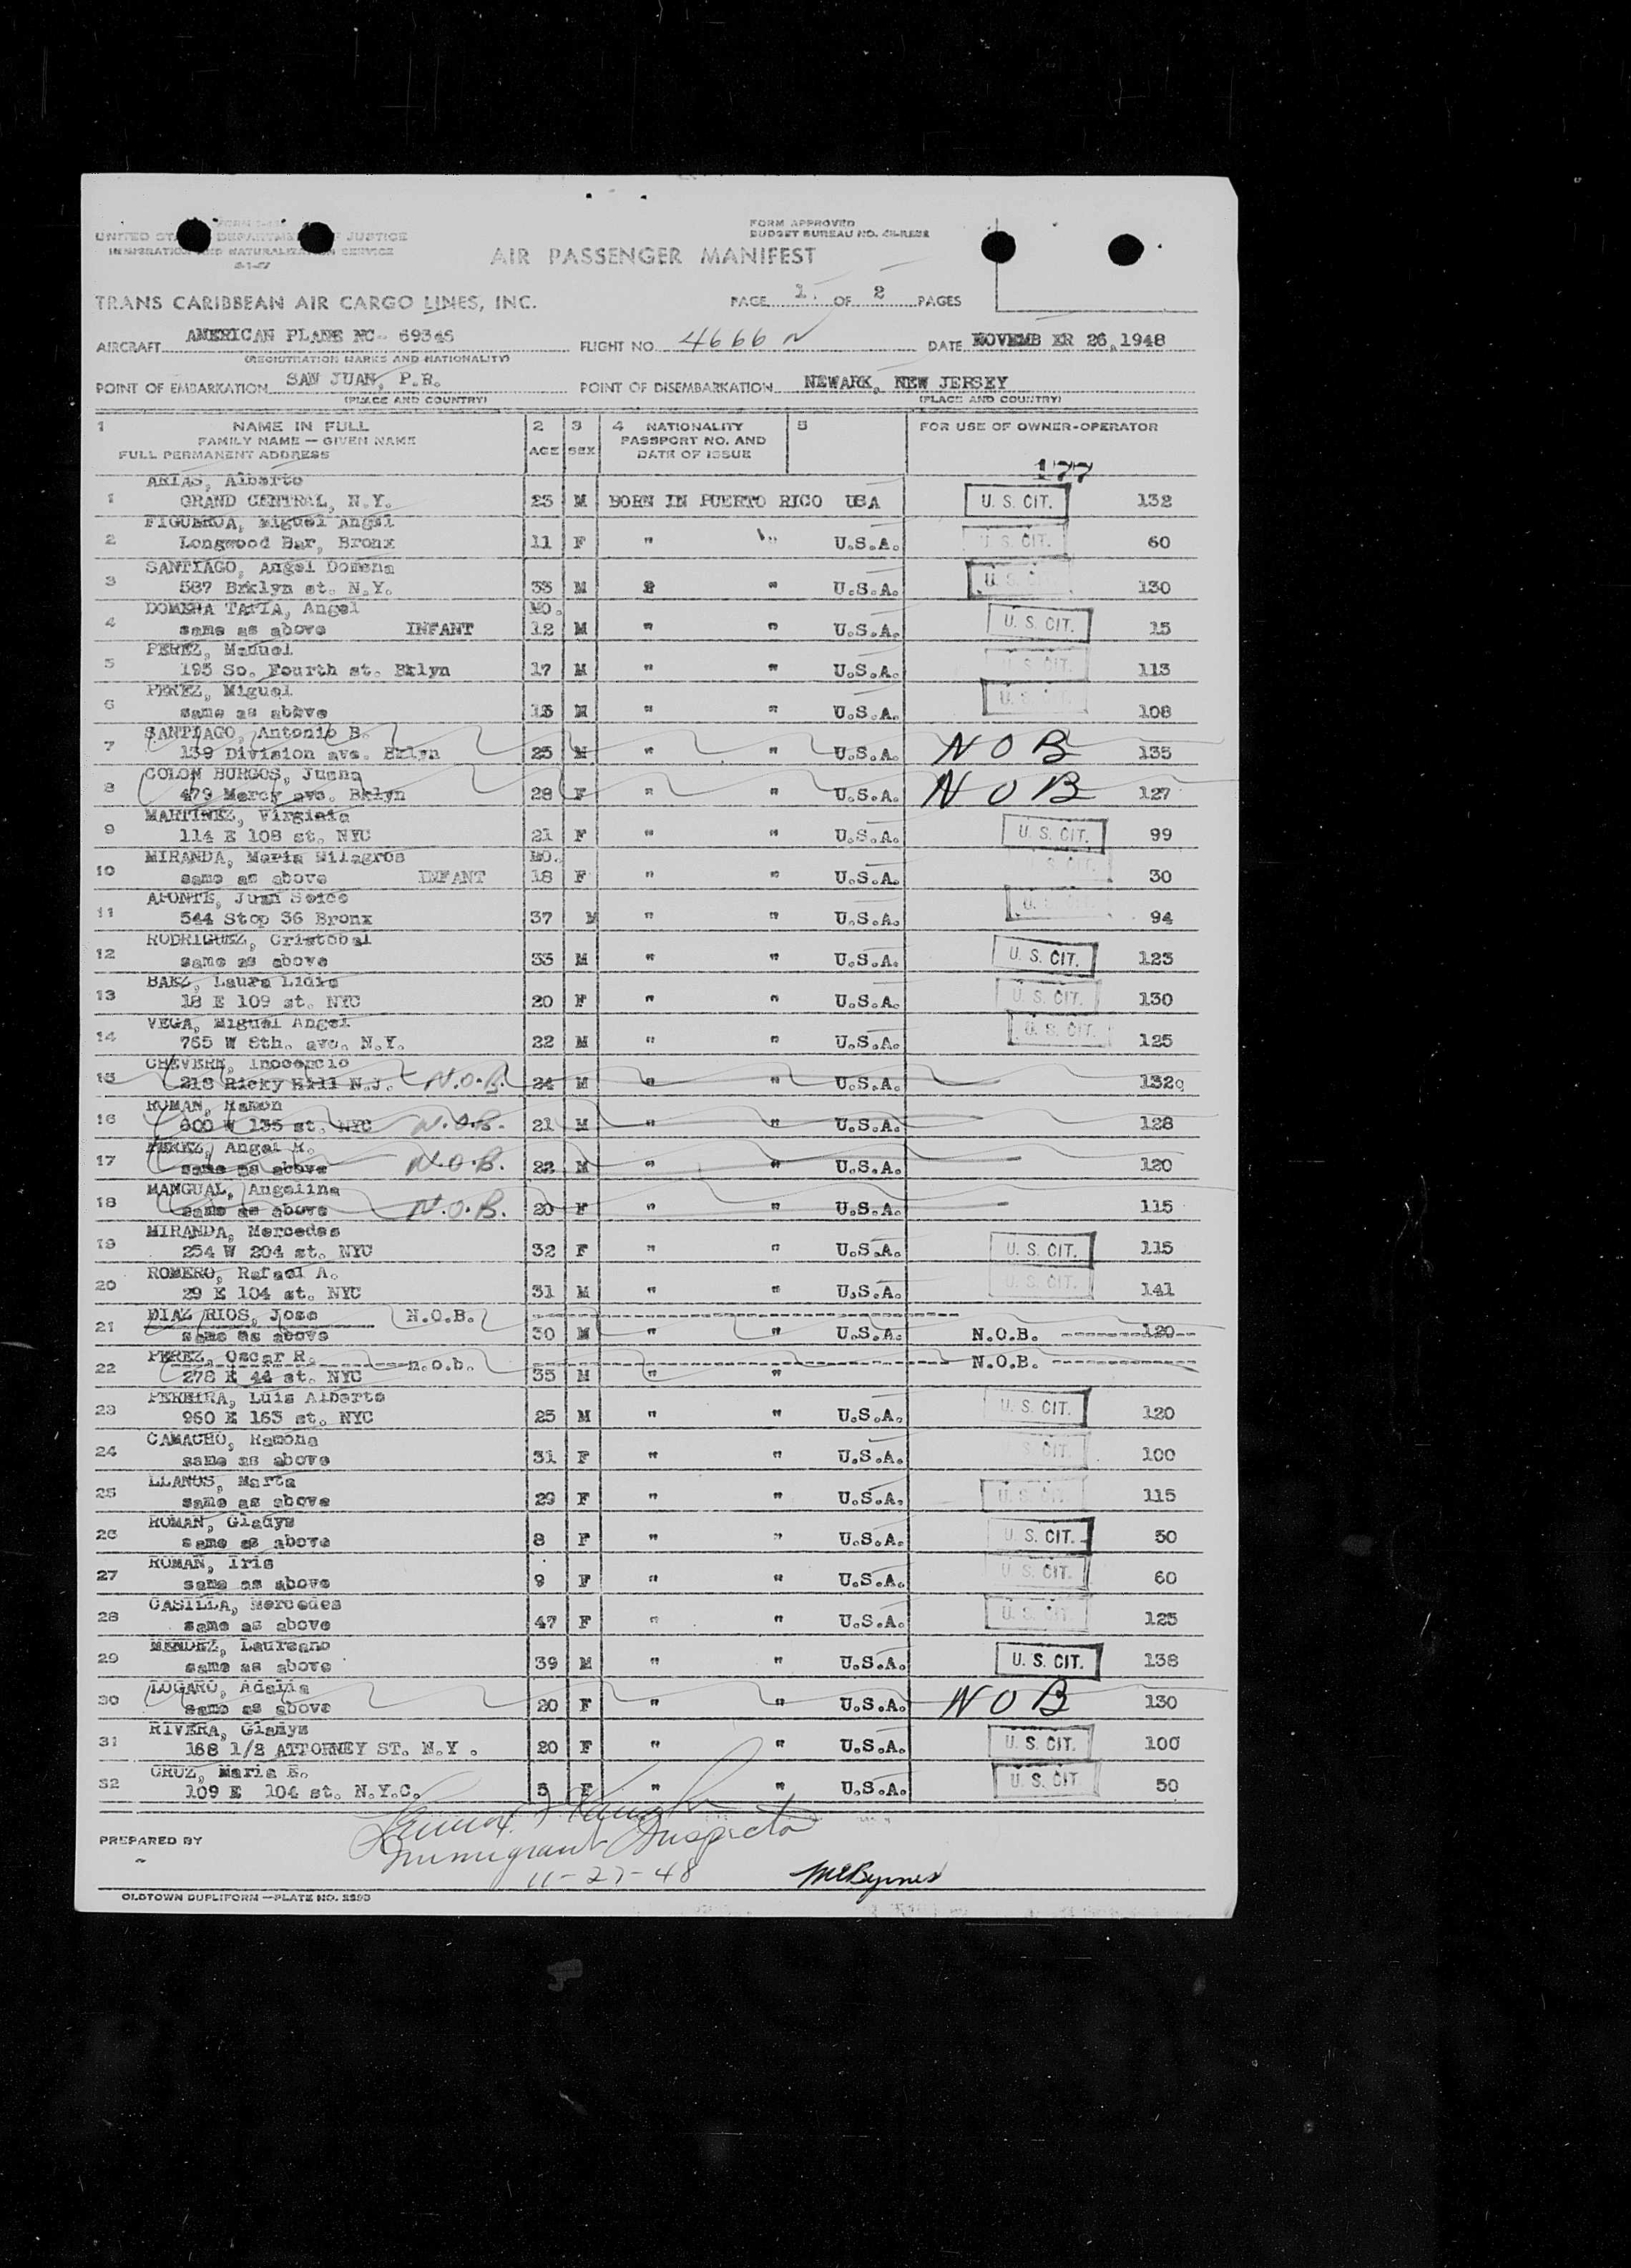 UNITED STATES DEPARTMENT OF JUSTICE
IMMIGRATION AND NATURALIZATION SERVICE
FORM APPROVED
BUDGET BUREAU NO.
AIR PASSENGER MANIFEST
TRANS CARIBBEAN AIR CARGO LINES, INC.
PAGE 1. OF 2 PAGES
AIRCRAFT AMERICAN PLANE NC- 69345 FLIGHT NO. 4666 N DATE NOVEMB ER 26, 1948
(REGISTRATION MARKS AND NATIONALITY)
POINT OF EMBARKATION SAN JUAN, P.R. POINT OF DISEMBARKATION NEWARK, NEW JERSEY
(PLACE AND COUNTRY) (PLACE AND COUNTRY)
1 NAME IN FULL 2 3 4 NATIONALITY 5 FOR USE OF OWNER-OPERATOR
FAMILY NAME — GIVEN NAME AGE SEX PASSPORT NO. AND
FULL PERMANENT ADDRESS DATE OF ISSUE
177
ARIAS, Alberto
1 GRAND CENTRAL, N.Y. 23 M BORN IN PUERTO RICO USA U. S. CIT. 132
FIGUEROA, Miguel Angel
2 Longwood Bar, Bronx 11 F " " U.S.A. U. S. CIT. 60
SANTIAGO, Angel Domena
3 587 Brklyn st. N.Y. 33 M " " U.S.A. U. S. CIT. 130
DOMENA TAPIA, Angel MO.
4 same as above INFANT 12 M " " U.S.A. U. S. CIT. 15
PEREZ, Manuel
5 195 So. Fourth st. Bklyn 17 M " " U.S.A. U. S. CIT. 113
PEREZ, Miguel
6 same as above 13 M " " U.S.A. U. S. CIT. 108
SANTIAGO, Antonio B.
7 139 Division ave. Bklyn 25 M " " U.S.A. NOB 135
COLON BURGOS, Juana
8 479 Marcy ave. Bklyn 28 F " " U.S.A. NOB 127
MARTINEZ, Virginia
9 114 E 108 st. NYC 21 F " " U.S.A. U. S. CIT. 99
MIRANDA, Maria Milagros MO.
10 same as above INFANT 18 F " " U.S.A. U. S. CIT. 30
APONTE, Juan
11 544 Stop 36 Bronx 37 M " " U.S.A. U. S. CIT. 94
RODRIGUEZ, Cristobal
12 same as above 33 M " " U.S.A. U. S. CIT. 123
BAEZ, Laura Lidia
13 18 E 109 st. NYC 20 F " " U.S.A. U. S. CIT. 130
VEGA, Miguel Angel
14 765 W 8th. ave. N.Y. 22 M " " U.S.A. U. S. CIT. 125
CHEVERE, Inocencio
15 218 Ricky Hill N.J. N.O.B. 24 M " " U.S.A. 132
ROMAN, Ramon
16 600 W 135 st. NYC N.O.B. 21 M " " U.S.A. 128
PEREZ, Angel R.
17 same as above N.O.B. 22 M " " U.S.A. 120
MANGUAL, Angelina
18 same as above N.O.B. 20 F " " U.S.A. 115
MIRANDA, Mercedes
19 254 W 204 st. NYC 32 F " " U.S.A. U. S. CIT. 115
ROMERO, Rafael A.
20 29 E 104 st. NYC 31 M " " U.S.A. U. S. CIT. 141
DIAZ RIOS, Jose N.O.B.
21 same as above 30 M " " U.S.A. N.O.B. 120
PEREZ, Oscar R. n.o.b. N.O.B.
22 278 E 44 st. NYC 35 M " "
PEREIRA, Luis Alberto
23 960 E 163 st. NYC 25 M " " U.S.A. U. S. CIT. 120
CAMACHO, Ramona
24 same as above 31 F " " U.S.A. U. S. CIT. 100
LLANOS, Marta
25 same as above 29 F " " U.S.A. U. S. CIT. 115
ROMAN, Gladys
26 same as above 8 F " " U.S.A. U. S. CIT. 50
ROMAN, Iris
27 same as above 9 F " " U.S.A. U. S. CIT. 60
CASILLA, Mercedes
28 same as above 47 F " " U.S.A. U. S. CIT. 125
MENDEZ, Laureano
29 same as above 39 M " " U.S.A. U. S. CIT. 138
LUGARO, Adalia
30 same as above 20 F " " U.S.A. NOB 130
RIVERA, Gladys
31 168 1/2 ATTORNEY ST. N.Y. 20 F " " U.S.A. U. S. CIT. 100
CRUZ, Maria E.
32 109 E 104 st. N.Y.C. 5 F " " U.S.A. U. S. CIT. 50
PREPARED BY
Immigrant Inspector
11-27-48 McByrnes
OLDTOWN DUPLIFORM—PLATE NO.